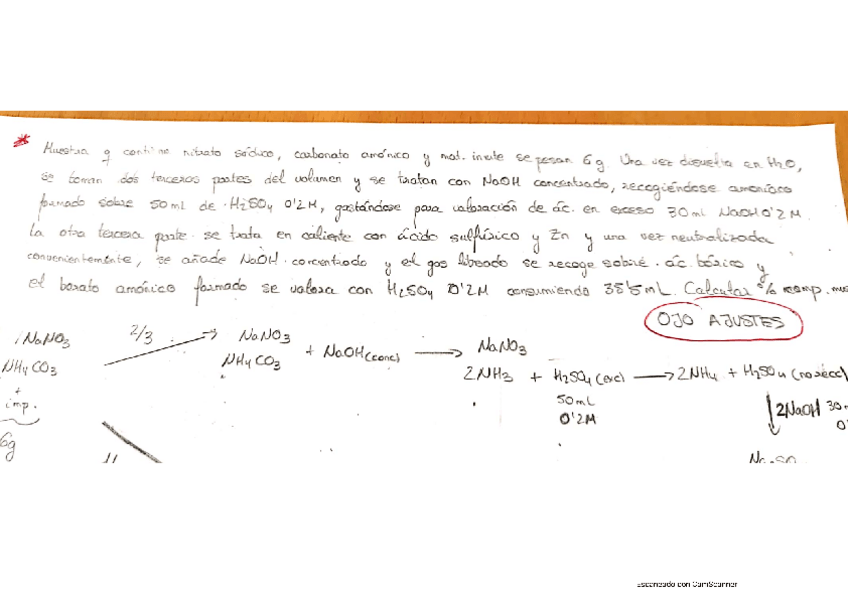 * Muestra q contiene nitrato sódico, carbonato amónico y mat. inerte se pesan 6g. Una vez disuelta en H2O,
se toman dos terceras partes del volumen y se tratan con NaOH concentrado, recogiéndose amoníaco
formado sobre 50 mL de H2SO4 0'2M, gastándose para valoración de ác. en exceso 30 mL NaOH 0'2M.
La otra tercera parte se trata en caliente con ácido sulfúrico y Zn y una vez neutralizada
convenientemente, se añade NaOH concentrado y el gas liberado se recoge sobre ác. bórico y
el borato amónico formado se valora con H2SO4 0'2M consumiendo 38'5 mL. Calcular % comp. mues
OJO AJUSTES
NaNO3 2/3 NaNO3
NH4CO3 NH4CO3 + NaOH(conc) → NaNO3
+ 2NH3 + H2SO4(exc) → 2NH4 + H2SO4 (no reacc)
imp. 50mL 2NaOH 30m
6g 0'2M 0'